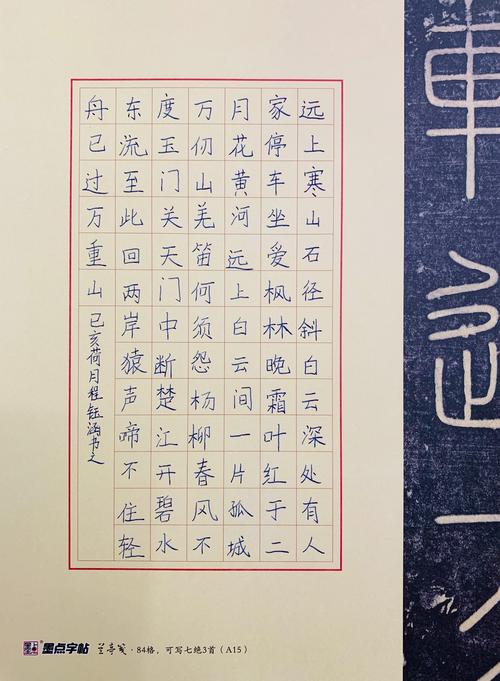 远上寒山石径斜白云深处有人
家停车坐爱枫林晚霜叶红于二
月花黄河远上白云间一片孤城
万仞山羌笛何须怨杨柳春风不
度玉门关天门中断楚江开碧水
东流至此回两岸猿声啼不住轻
舟已过万重山 己亥荷月程钰涵书之
墨点字帖 兰亭笺·84格，可写七绝3首（A15）